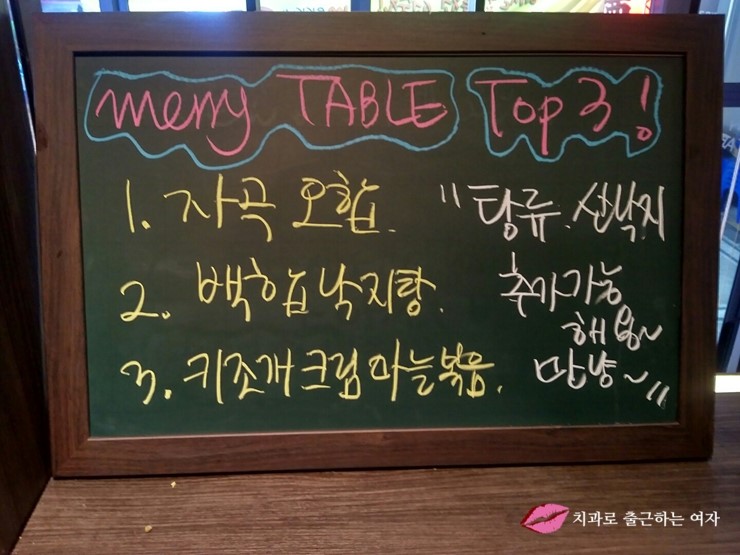 merry TABLE Top 3!
1. 자곡 오합.
2. 백합낙지탕.
3. 키조개크림마늘볶음.
"탕류. 산낙지
추가가능
해용~
만냥~"
치과로 출근하는 여자